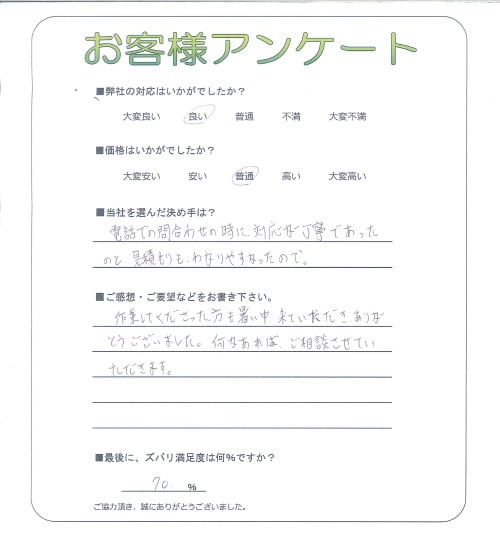 お客様アンケート
■弊社の対応はいかがでしたか？
大変良い 良い 普通 不満 大変不満
■価格はいかがでしたか？
大変安い 安い 普通 高い 大変高い
■当社を選んだ決め手は？
電話での問合わせの時に対応が丁寧であった
のと見積もりも、わかりやすかったので。
■ご感想・ご要望などをお書き下さい。
作業してくださった方も暑い中来ていただきありが
とうございました。何かあれば、ご相談させてい
ただきます。
■最後に、ズバリ満足度は何%ですか？
70 %
ご協力頂き、誠にありがとうございました。